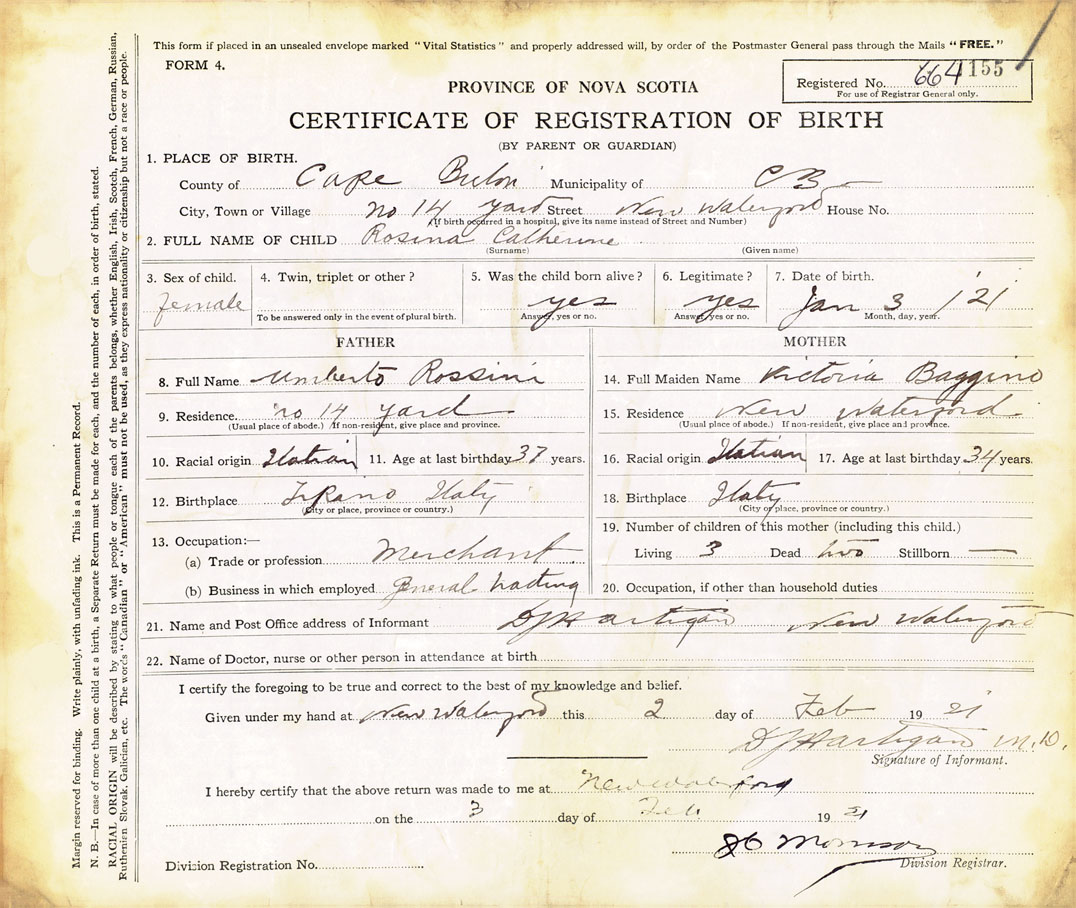 This form if placed in an unsealed envelope marked "Vital Statistics" and properly addressed will, by order of the Postmaster General pass through the Mails "FREE."
FORM 4.
Registered No. 664 1155
For use of Registrar General only.
PROVINCE OF NOVA SCOTIA
CERTIFICATE OF REGISTRATION OF BIRTH
(BY PARENT OR GUARDIAN)
1. PLACE OF BIRTH.
County of Cape Breton Municipality of C B
City, Town or Village No 14 Yard Street New Waterford House No.
(If birth occurred in a hospital, give its name instead of Street and Number)
2. FULL NAME OF CHILD Rosina Catherine
(Surname) (Given name)
3. Sex of child. 4. Twin, triplet or other? 5. Was the child born alive? 6. Legitimate? 7. Date of birth.
female yes yes Jan 3 / '21
To be answered only in the event of plural birth. Answer, yes or no. Answer, yes or no. Month, day, year.
FATHER
8. Full Name Umberto Rossini
9. Residence. no 14 yard
(Usual place of abode.) If non-resident, give place and province.
10. Racial origin Italian 11. Age at last birthday 37 years.
12. Birthplace Italy
(City or place, province or country.)
13. Occupation:—
(a) Trade or profession Merchant
(b) Business in which employed General trading
MOTHER
14. Full Maiden Name Victoria Baggino
15. Residence New Waterford
(Usual place of abode.) If non-resident, give place and province.
16. Racial origin Italian 17. Age at last birthday 34 years.
18. Birthplace Italy
(City or place, province or country.)
19. Number of children of this mother (including this child.)
Living 3 Dead two Stillborn —
20. Occupation, if other than household duties
21. Name and Post Office address of Informant D J Hartigan New Waterford
22. Name of Doctor, nurse or other person in attendance at birth
I certify the foregoing to be true and correct to the best of my knowledge and belief.
Given under my hand at New Waterford this 2 day of Feb 19 21
D J Hartigan M.D.
Signature of Informant.
I hereby certify that the above return was made to me at New Waterford
on the 3 day of Feb 19 21
Morrison
Division Registrar.
Division Registration No.
Margin reserved for binding. Write plainly, with unfading ink. This is a Permanent Record.
N. B.—In case of more than one child at a birth, a Separate Return must be made for each, and the number of each, in order of birth, stated.
RACIAL ORIGIN will be described by stating to what people or tongue each of the parents belongs, whether English, Irish, Scotch, French, German, Russian,
Ruthenian, Slovak, Galician, etc. The words "Canadian" or "American" must not be used, as they express nationality or citizenship but not a race or people.